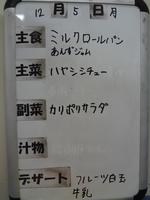 12月5日月
主食 ミルクロールパン
あんずジャム
主菜 ハヤシシチュー
副菜 カリポリサラダ
汁物
デザート フルーツ白玉
牛乳